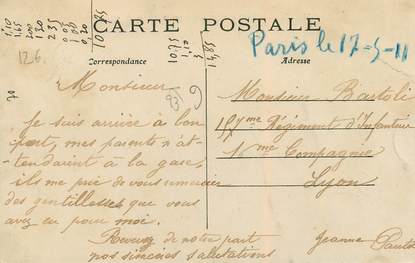 CARTE POSTALE
Correspondance
Adresse
Paris le 17-5-11
126
Monsieur
Je suis arrivée à bon
port, mes parents m'at-
tendaint à la gare,
ils me prie de vous remercier
des gentillesses que vous
avez eu pour moi.
Recevez de notre part
nos sincères salutations
Monsieur Bastoli
Régiment d'Infanterie
16me Compagnie
Lyon
Jeanne